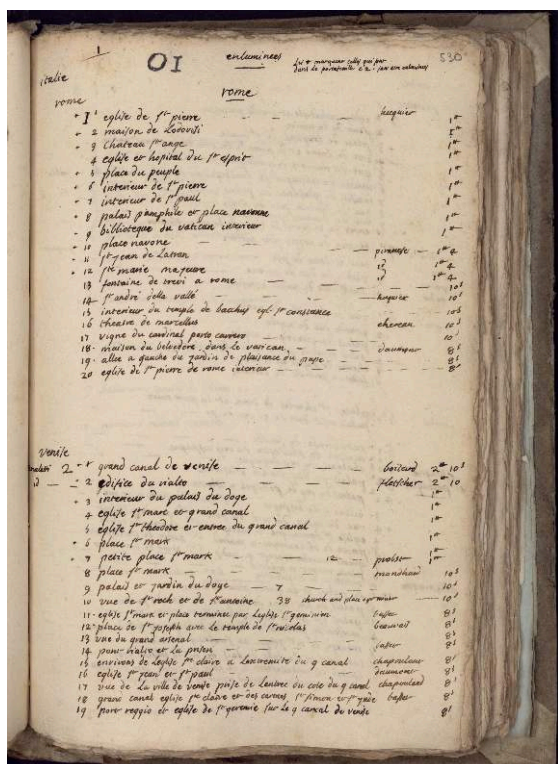 1 01 enluminees 530
italie
rome rome
+ 1 eglise de st pierre huquier 1#
+ 2 maison de Lodovisi 1#
+ 3 Chateau st ange 1#
4 eglise et hopital du st esprit 1#
+ 5 place du peuple 1#
+ 6 interieur de st pierre 1#
+ 7 interieur de st paul 1#
+ 8 palais pamphile et place navonne 1#
- 9 biblioteque du vatican interieur 1#
+ 10 place navone
+ 11 st jean de Latran piranese 1# 4
+ 12 ste marie majeure id 1# 4
13 fontaine de trevi a rome 10s
14 st andré della valle huquier 10s
15 interieur du temple de bacchus egl. ste constance 10s
16 theatre de marcellus chereau 10s
17 vigne du cardinal porto carrero 10s
18 maison du belvedere, dans le vatican daumont 8s
19 allee a gauche du jardin de plaisance du pape 8s
20 eglise de st pierre de rome interieur 8s
venise
2 + 1 grand canal de venise boitard 2# 10s
id + 2 edifice du rialto fletscher 2# 10
+ 3 interieur du palais du doge 1#
4 eglise st marc et grand canal 1#
5 eglise st theodore et entree du grand canal 1#
+ 6 place st mark 1#
+ 7 petite place st mark 12 probst 1#
8 place st mark 10s
9 palais et jardin du doge 7 10s
10 vue de st roch et de st antoine 38 church and place 10s
11 eglise st marc et place terminee par leglise st geminien basset 8s
12 place de st joseph avec le temple de st nicolas beauvais 8s
13 vue du grand arsenal 8s
14 pont rialto et la prison basset 8s
15 environs de leglise ste claire a lextremite du g canal chapoulaud 8s
16 eglise st jean et st paul daumont 8s
17 vue de la ville de venise prise de lentree du cote du g canal chapoulard 8s
18 grand canal eglise ste claire et des st simon et st jude basset 8s
19 pont reggio et eglise de st geremie sur le g canal de venise 8s